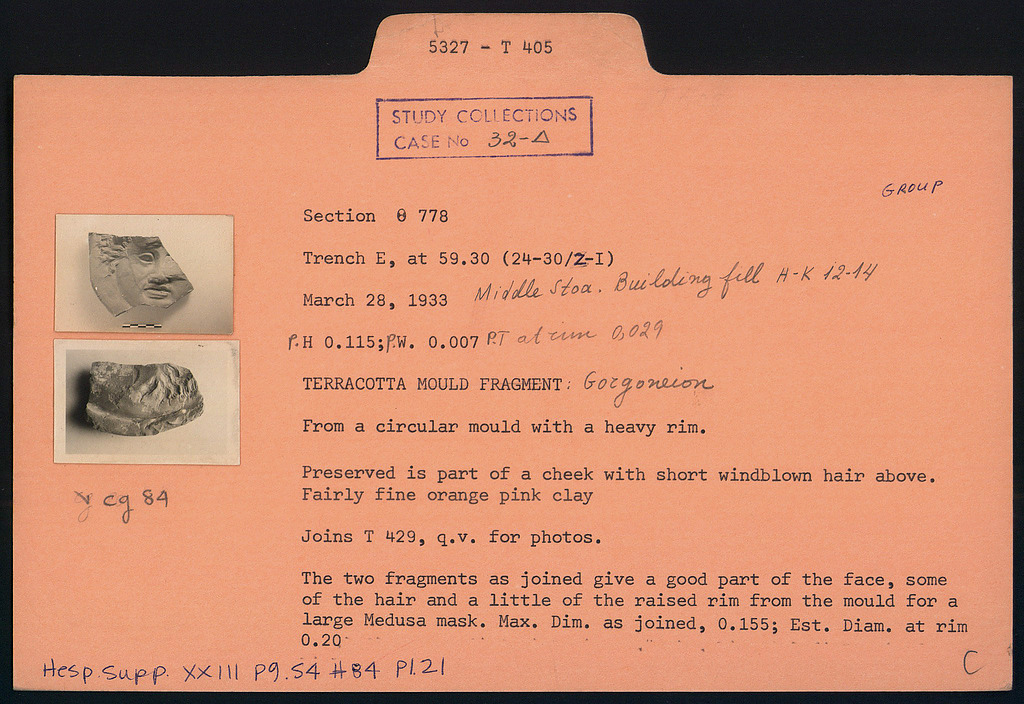 5327 - T 405
STUDY COLLECTIONS
CASE No 32-Δ
GROUP
Section θ 778
Trench E, at 59.30 (24-30/Z-I)
March 28, 1933 Middle Stoa. Building fill H-K 12-14
P.H 0.115; P.W. 0.007 P.T at rim 0,029
TERRACOTTA MOULD FRAGMENT: Gorgoneion
From a circular mould with a heavy rim.
Preserved is part of a cheek with short windblown hair above.
Fairly fine orange pink clay
cg 84
Joins T 429, q.v. for photos.
The two fragments as joined give a good part of the face, some
of the hair and a little of the raised rim from the mould for a
large Medusa mask. Max. Dim. as joined, 0.155; Est. Diam. at rim
0.20
Hesp. Supp. XXIII pg. 54 #84 Pl. 21
C